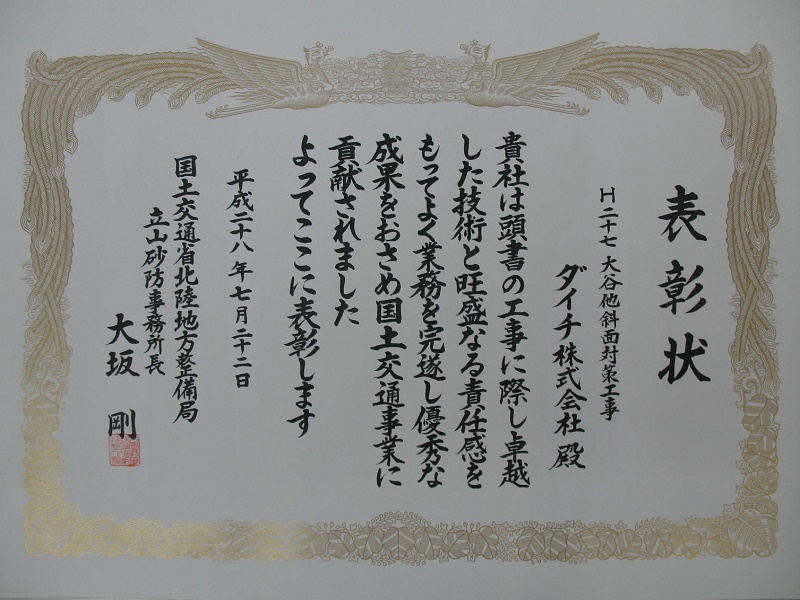 表彰状
H二十七 大谷他斜面対策工事
ダイチ株式会社 殿
貴社は頭書の工事に際し卓越
した技術と旺盛なる責任感を
もってよく業務を完遂し優秀な
成果をおさめ国土交通事業に
貢献されました
よってここに表彰します
平成二十八年七月二十二日
国土交通省北陸地方整備局
立山砂防事務所長
大坂 剛